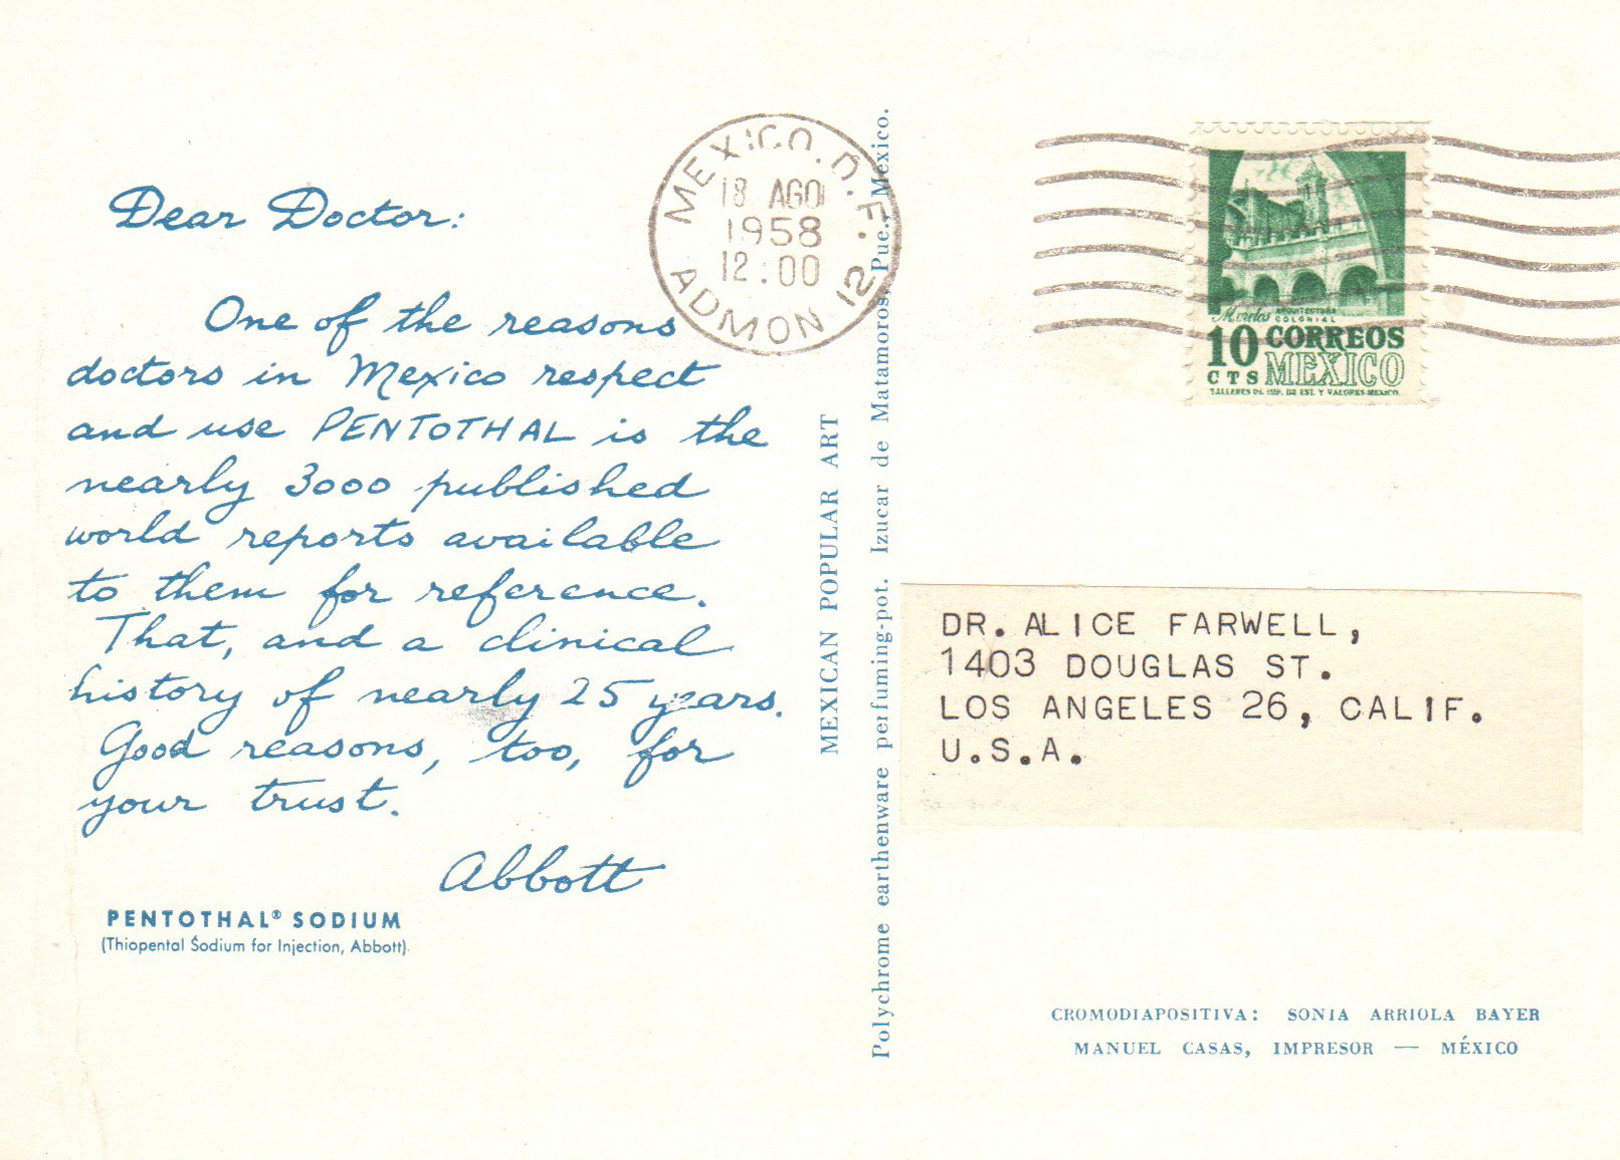 Dear Doctor:
One of the reasons
doctors in Mexico respect
and use PENTOTHAL is the
nearly 3000 published
world reports available
to them for reference.
That, and a clinical
history of nearly 25 years.
Good reasons, too, for
your trust.
Abbott
PENTOTHAL® SODIUM
(Thiopental Sodium for Injection, Abbott)
MEXICO, D.F.
18 AGO
1958
12:00
ADMON 12
MEXICAN POPULAR ART
Polychrome earthenware perfuming-pot. Izucar de Matamoros, Pue., Mexico.
Morelos ARQUITECTURA
COLONIAL
10 CORREOS
CTS MEXICO
TALLERES DE IMP. DE EST. Y VALORES-MEXICO.
DR. ALICE FARWELL,
1403 DOUGLAS ST.
LOS ANGELES 26, CALIF.
U.S.A.
CROMODIAPOSITIVA: SONIA ARRIOLA BAYER
MANUEL CASAS, IMPRESOR — MÉXICO